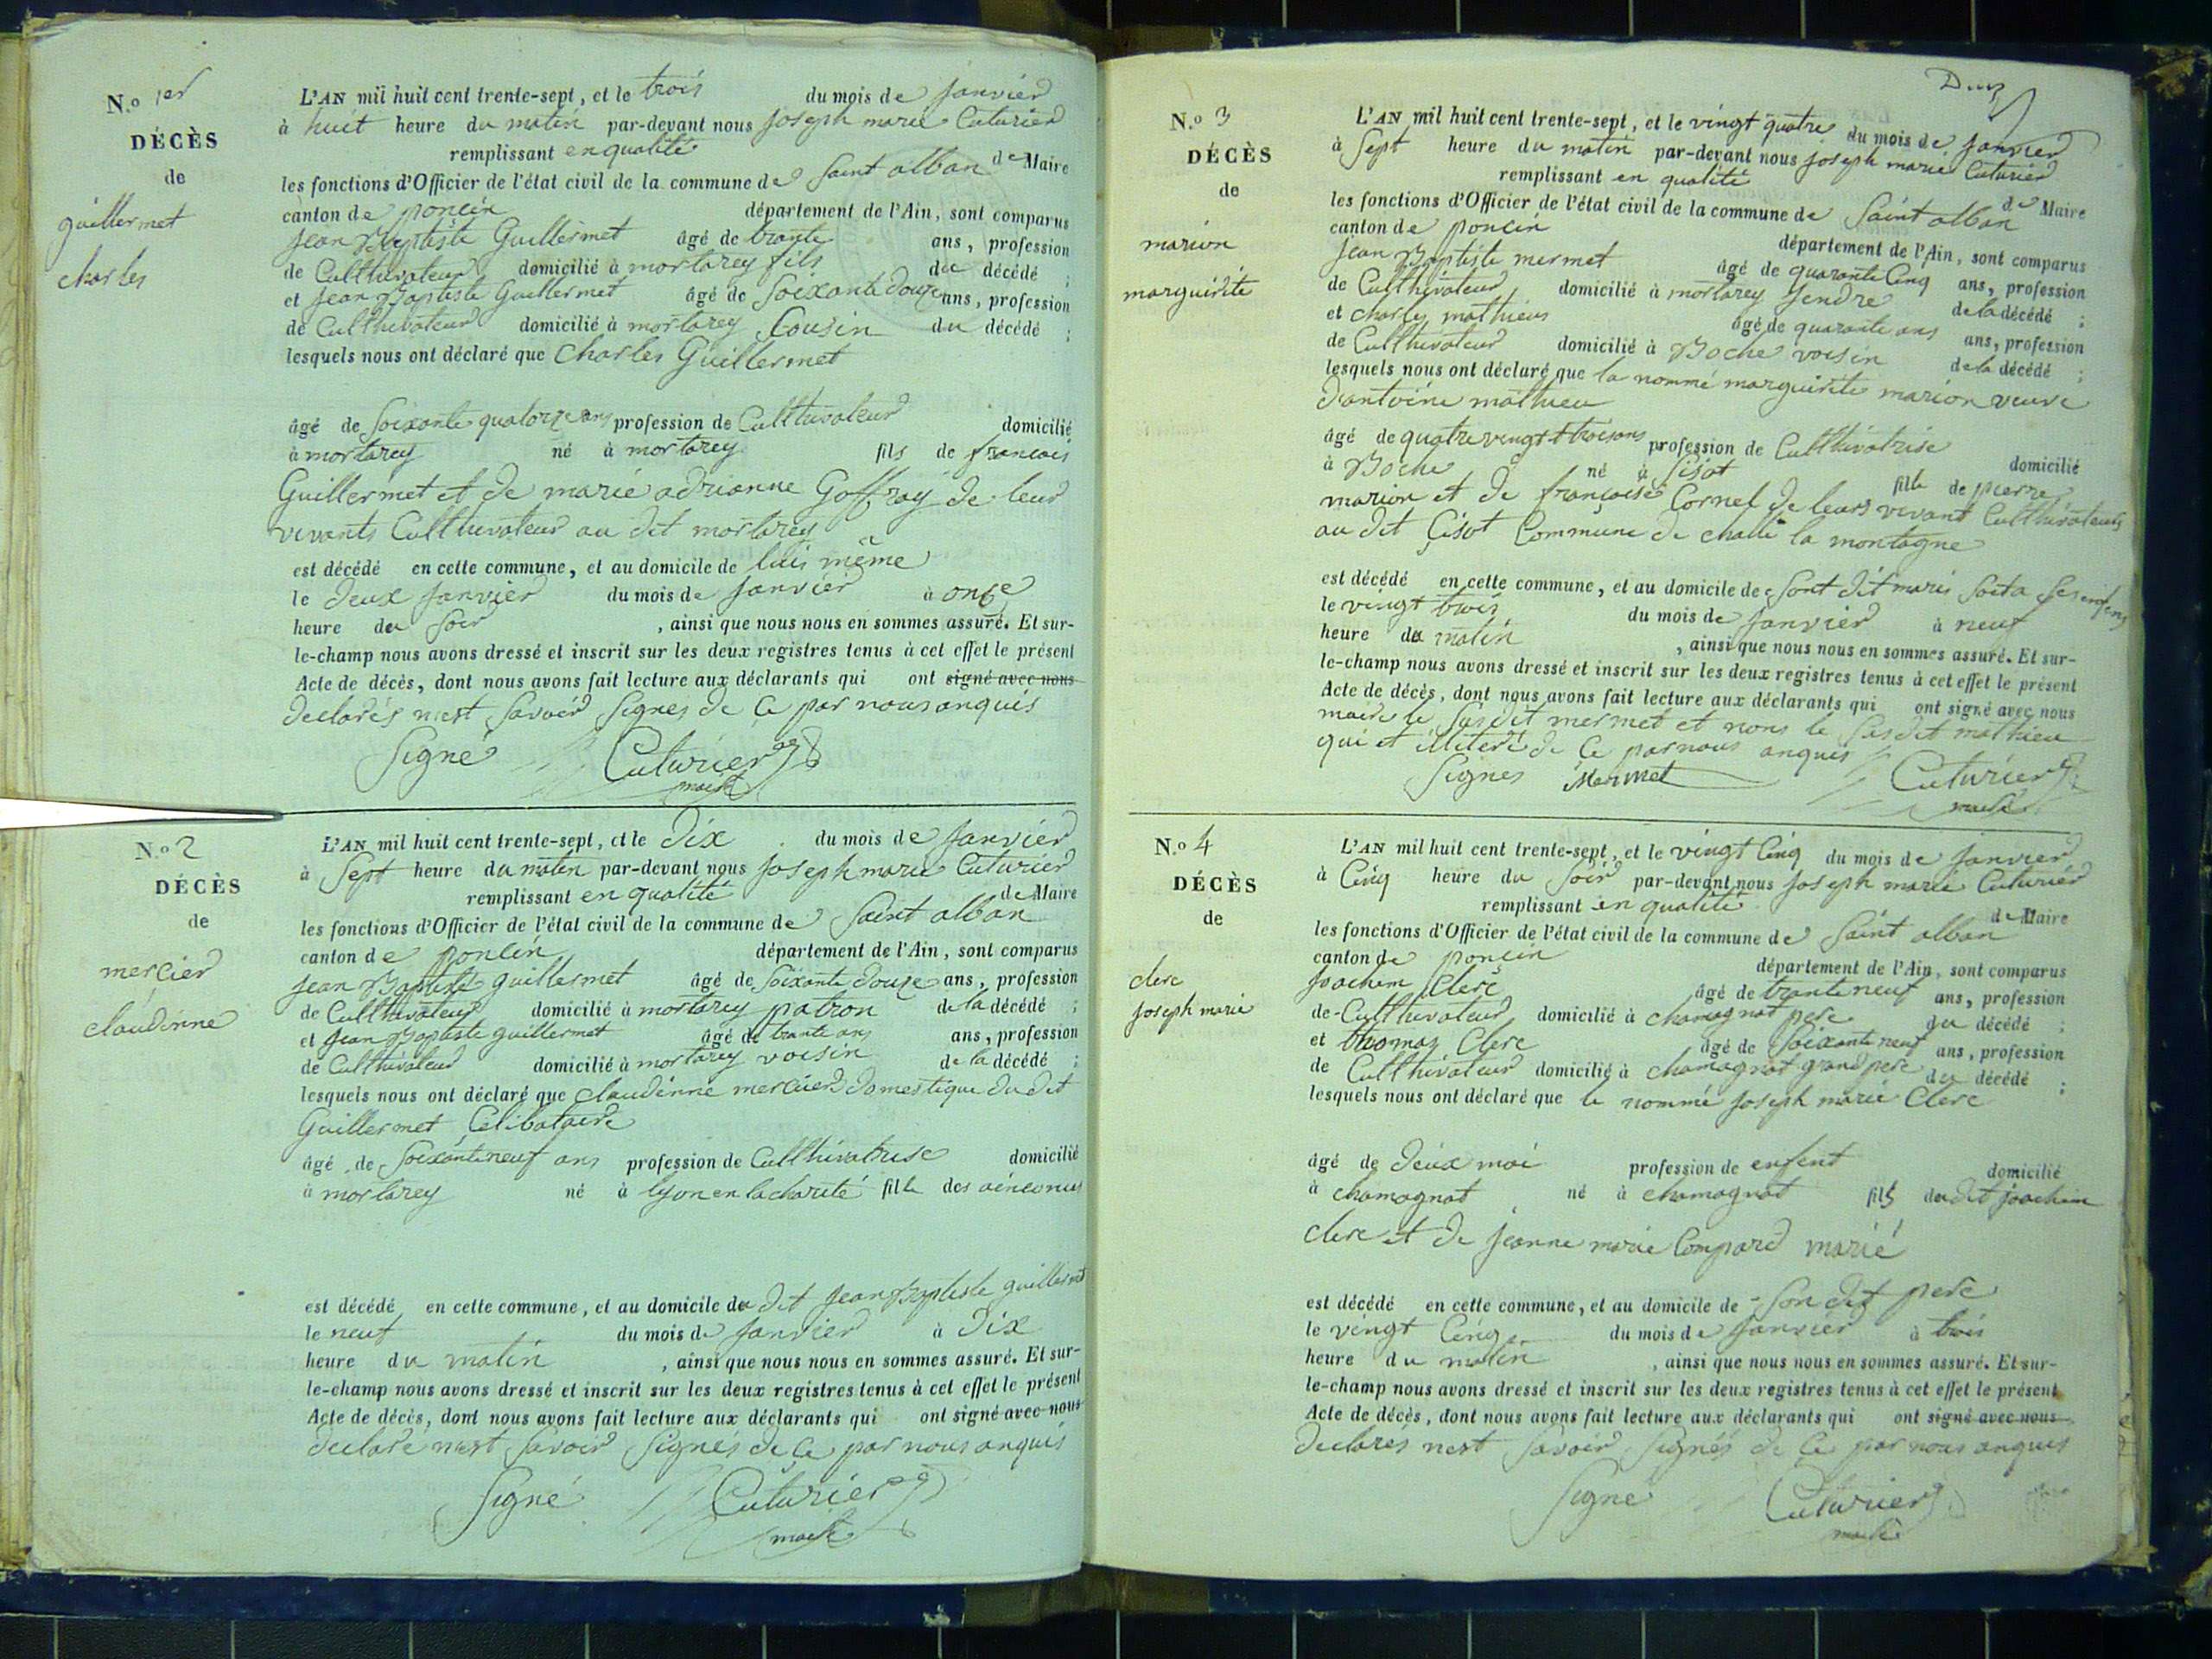 N.o 1er
DÉCÈS
de
guillermet
charles
L'AN mil huit cent trente-sept, et le trois du mois de janvier
à huit heure du matin par-devant nous joseph marie Cuturier
remplissant en qualité de Maire
les fonctions d'Officier de l'état civil de la commune de Saint alban
canton de poncin département de l'Ain, sont comparus
jean Baptiste Guillermet âgé de trante ans, profession
de Culthivateur domicilié à mortarey fils du décédé ;
et jean Baptiste Guillermet âgé de Soixante douze ans, profession
de Culthivateur domicilié à mortarey Cousin du décédé ;
lesquels nous ont déclaré que Charles Guillermet
âgé de Soixante quatorze ans profession de Culthivateur domicilié
à mortarey né à mortarey fils de francois
Guillermet et de marie adrianne Goffray de leur
vivants Culthivateur au dit mortarey
est décédé en cette commune, et au domicile de luis même
le deux janvier du mois de janvier à onze
heure du soir , ainsi que nous nous en sommes assuré. Et sur-
le-champ nous avons dressé et inscrit sur les deux registres tenus à cet effet le présent
Acte de décès, dont nous avons fait lecture aux déclarants qui ont signé avec nous
declarés nest Savoir Signes de Ce par nous anquis
Signé Cuturier
maire
N.o 2
DÉCÈS
de
mercier
claudinne
L'AN mil huit cent trente-sept, et le dix du mois de janvier
à Sept heure du matin par-devant nous joseph marie Cuturier
remplissant en qualité de Maire
les fonctions d'Officier de l'état civil de la commune de Saint alban
canton de poncin département de l'Ain, sont comparus
jean Baptiste guillermet âgé de Soixante douze ans, profession
de Culthivateur domicilié à mortarey patron de la décédé ;
et jean Baptiste guillermet âgé de trante ans ans, profession
de Culthivateur domicilié à mortarey voisin de la décédé ;
lesquels nous ont déclaré que claudinne mercier domestique du dit
Guillermet Celibataire
âgé de Soixante neuf ans profession de Culthivatrise domicilié
à mortarey né à lyon en la charité fille des
est décédé en cette commune, et au domicile du dit jean Baptiste guillermet
le neuf du mois de janvier à dix
heure du matin , ainsi que nous nous en sommes assuré. Et sur-
le-champ nous avons dressé et inscrit sur les deux registres tenus à cet effet le présent
Acte de décès, dont nous avons fait lecture aux déclarants qui ont signé avec nous
declaré nest Savoir Signés de Ce par nous anquis
Signé Cuturier
maire
N.o 3
DÉCÈS
de
marion
marguirite
L'AN mil huit cent trente-sept, et le vingt quatre du mois de janvier
à Sept heure du matin par-devant nous joseph marie Cuturier
remplissant en qualité de Maire
les fonctions d'Officier de l'état civil de la commune de Saint alban
canton de poncin département de l'Ain, sont comparus
jean Baptiste mermet âgé de quarante Cinq ans, profession
de Culthivateur domicilié à mortarey jendre de la décédé ;
et charles mathieu âgé de quarante ans ans, profession
de Culthivateur domicilié à Boche voisin de la décédé ;
lesquels nous ont déclaré que la nommé marguirite marion veuve
dantoine mathieu
âgé de quatre vingt troisans profession de Culthivatrise domicilié
à Boche né à sisot fille de pierre
marion et de françoise Cornel de leurs vivant Culthivateurs
au dit Çisot Commune de challe la montagne
est décédé en cette commune, et au domicile de Sont dit maris Soita Ses enfans
le vingt trois du mois de janvier à neuf
heure du matin , ainsi que nous nous en sommes assuré. Et sur-
le-champ nous avons dressé et inscrit sur les deux registres tenus à cet effet le présent
Acte de décès, dont nous avons fait lecture aux déclarants qui ont signé avec nous
maire le Susdit mermet et nons le Susdit mathieu
qui et illiteré de Ce par nous anquis
Signes Mermet Cuturier
maire
N.o 4
DÉCÈS
de
clerc
joseph marie
L'AN mil huit cent trente-sept, et le vingt Cinq du mois de janvier
à Cinq heure du soir par-devant nous joseph marie Cuturier
remplissant en qualité de Maire
les fonctions d'Officier de l'état civil de la commune de Saint alban
canton de poncin département de l'Ain, sont comparus
joachim Clerc âgé de trante neuf ans, profession
de Culthivateur domicilié à chamagnat pere du décédé ;
et thomas Clerc âgé de Soixante neuf ans, profession
de Culthivateur domicilié à chamagnat grand pere du décédé ;
lesquels nous ont déclaré que le nommé joseph marie Clerc
âgé de deux moi profession de enfent domicilié
à chamagnat né à chamagnat fils du dit joachim
clerc et de jeanne marie Compard marié
est décédé en cette commune, et au domicile de Son dit pere
le vingt Cinq du mois de janvier à trois
heure du matin , ainsi que nous nous en sommes assuré. Et sur-
le-champ nous avons dressé et inscrit sur les deux registres tenus à cet effet le présent
Acte de décès, dont nous avons fait lecture aux déclarants qui ont signé avec nous
declarés nest Savoir Signés de Ce par nous anquis
Signé Cuturier
maire